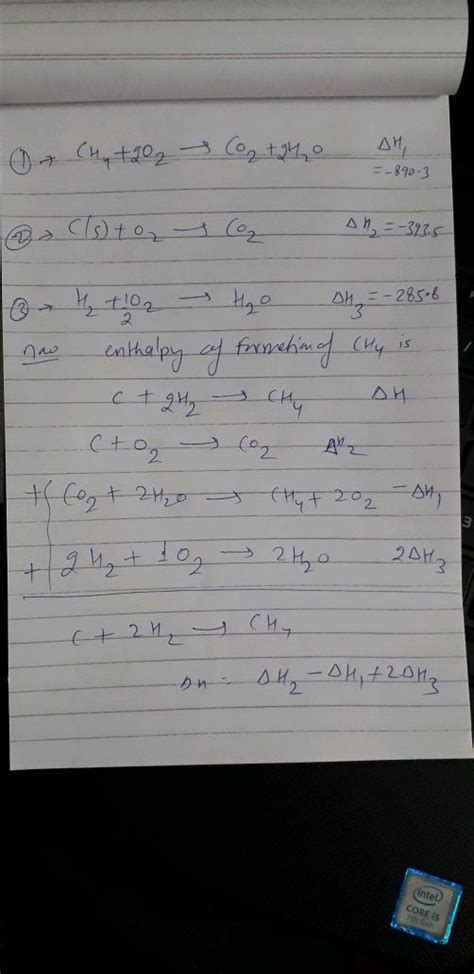 ① → CH₄ + 2O₂ → CO₂ + 2H₂O ΔH₁
= -890.3
② → C(s) + O₂ → CO₂ ΔH₂ = -393.5
③ → H₂ + 1O₂/2 → H₂O ΔH₃ = -285.8
now enthalpy of formation of CH₄ is
C + 2H₂ → CH₄ ΔH
C + O₂ → CO₂ ΔH₂
+ CO₂ + 2H₂O → CH₄ + 2O₂ -ΔH₁
+ 2H₂ + 1O₂ → 2H₂O 2ΔH₃
C + 2H₂ → CH₄
ΔH = ΔH₂ - ΔH₁ + 2ΔH₃
3
intel
CORE i5
7th Gen